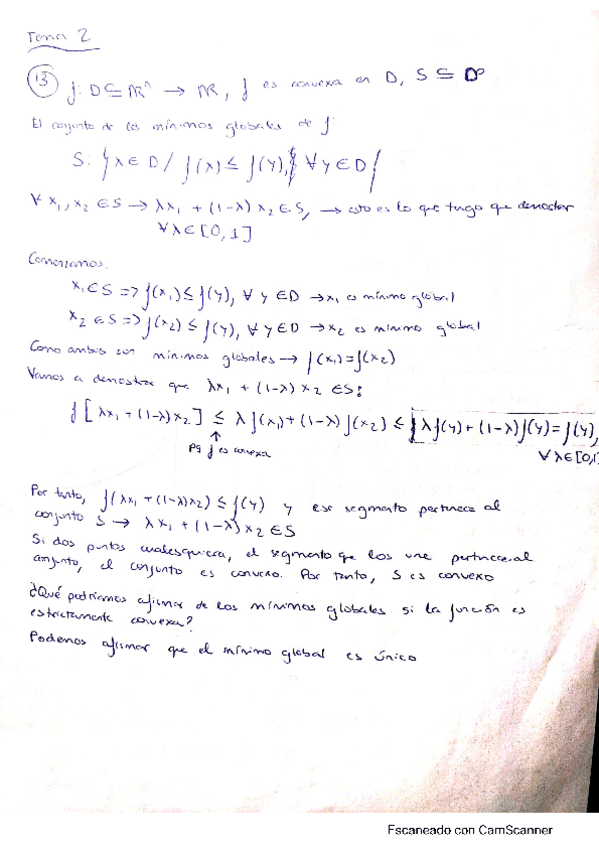 Tema 2
13 f: D ⊆ ℝⁿ → ℝ, f es convexa en D, S ⊆ D
El conjunto de los mínimos globales de f:
S: {x ∈ D / f(x) ≤ f(y), ∀ y ∈ D}
∀ x₁, x₂ ∈ S → λx₁ + (1-λ) x₂ ∈ S, → esto es lo que tengo que demostrar
∀ λ ∈ [0,1]
Comenzamos:
x₁ ∈ S => f(x₁) ≤ f(y), ∀ y ∈ D → x₁ es mínimo global
x₂ ∈ S => f(x₂) ≤ f(y), ∀ y ∈ D → x₂ es mínimo global
Como ambos son mínimos globales → f(x₁) = f(x₂)
Vamos a demostrar que λx₁ + (1-λ) x₂ ∈ S:
f[λx₁ + (1-λ)x₂] ≤ λ f(x₁) + (1-λ) f(x₂) ≤ λ f(y) + (1-λ) f(y) = f(y),
↑
pq f es convexa
∀ λ ∈ [0,1]
Por tanto, f(λx₁ + (1-λ)x₂) ≤ f(y) y ese segmento pertenece al
conjunto S → λx₁ + (1-λ) x₂ ∈ S
Si dos puntos cualesquiera, el segmento que los une pertenece al
conjunto, el conjunto es convexo. Por tanto, S es convexo
¿Qué podríamos afirmar de los mínimos globales si la función es
estrictamente convexa?
Podemos afirmar que el mínimo global es único
Escaneado con CamScanner